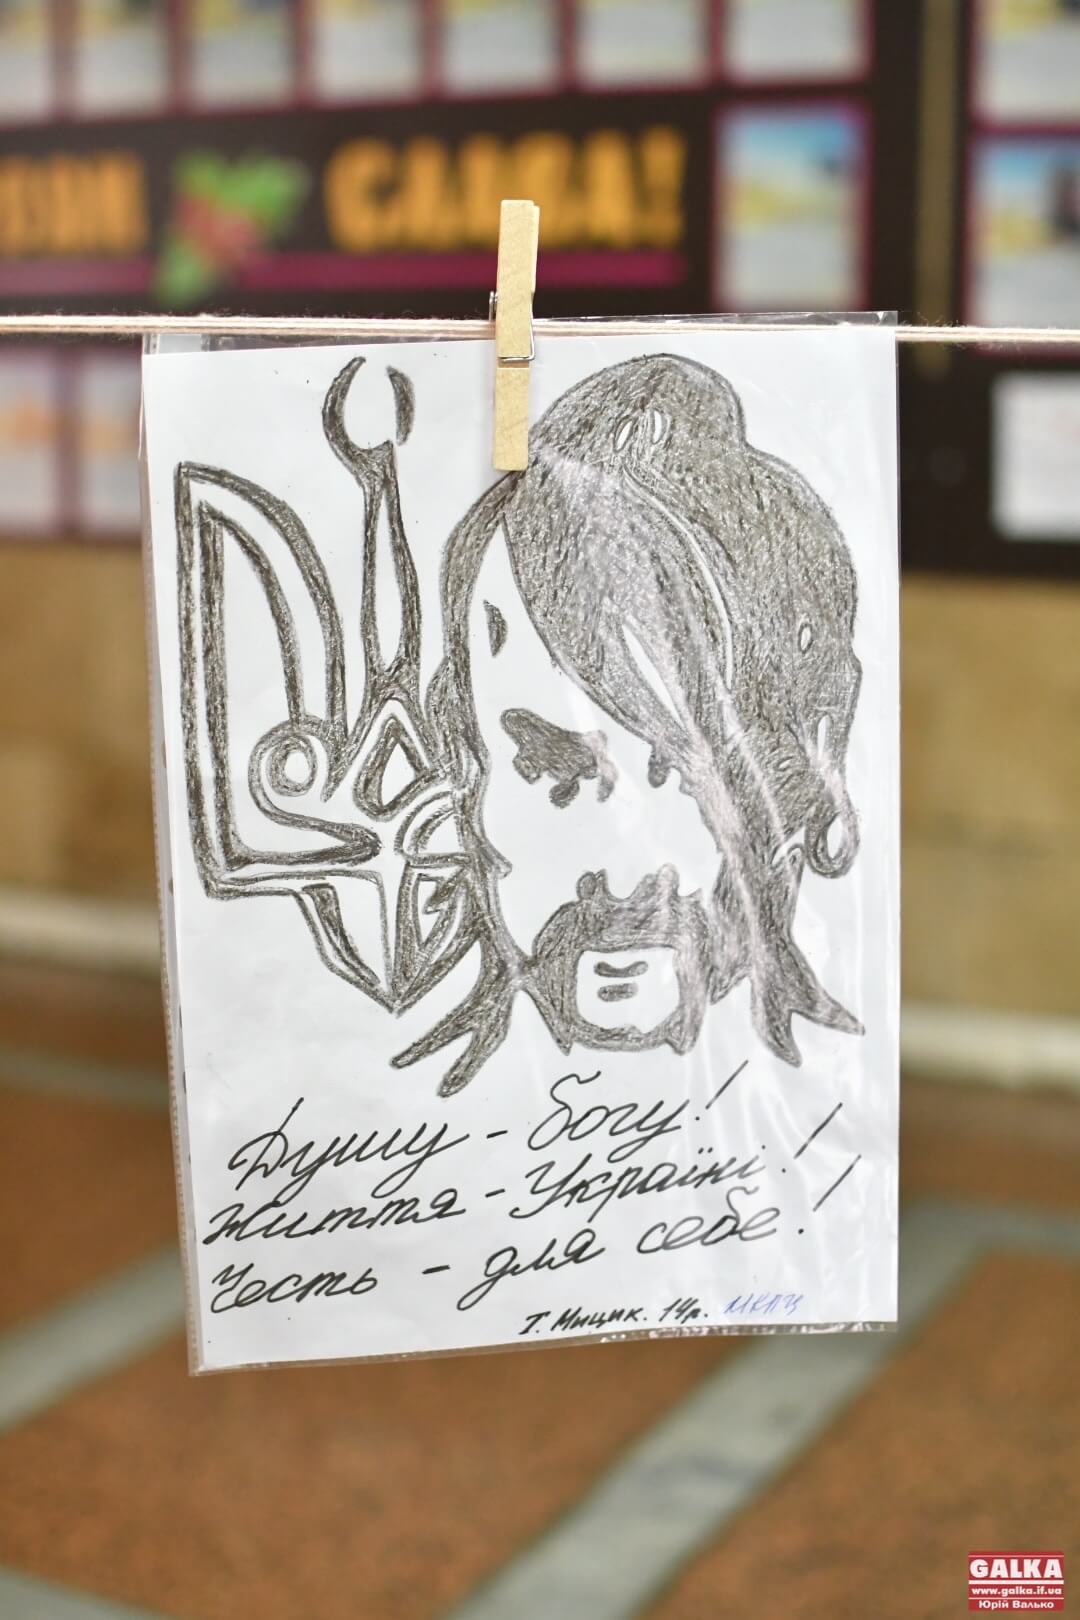 СЛАВА!
Душу - богу!
Життя - Україні!
Честь - для себе!
Т. Мицик. 14р. МКПЦ
GALKA
www.galka.if.ua
Юрій Валько